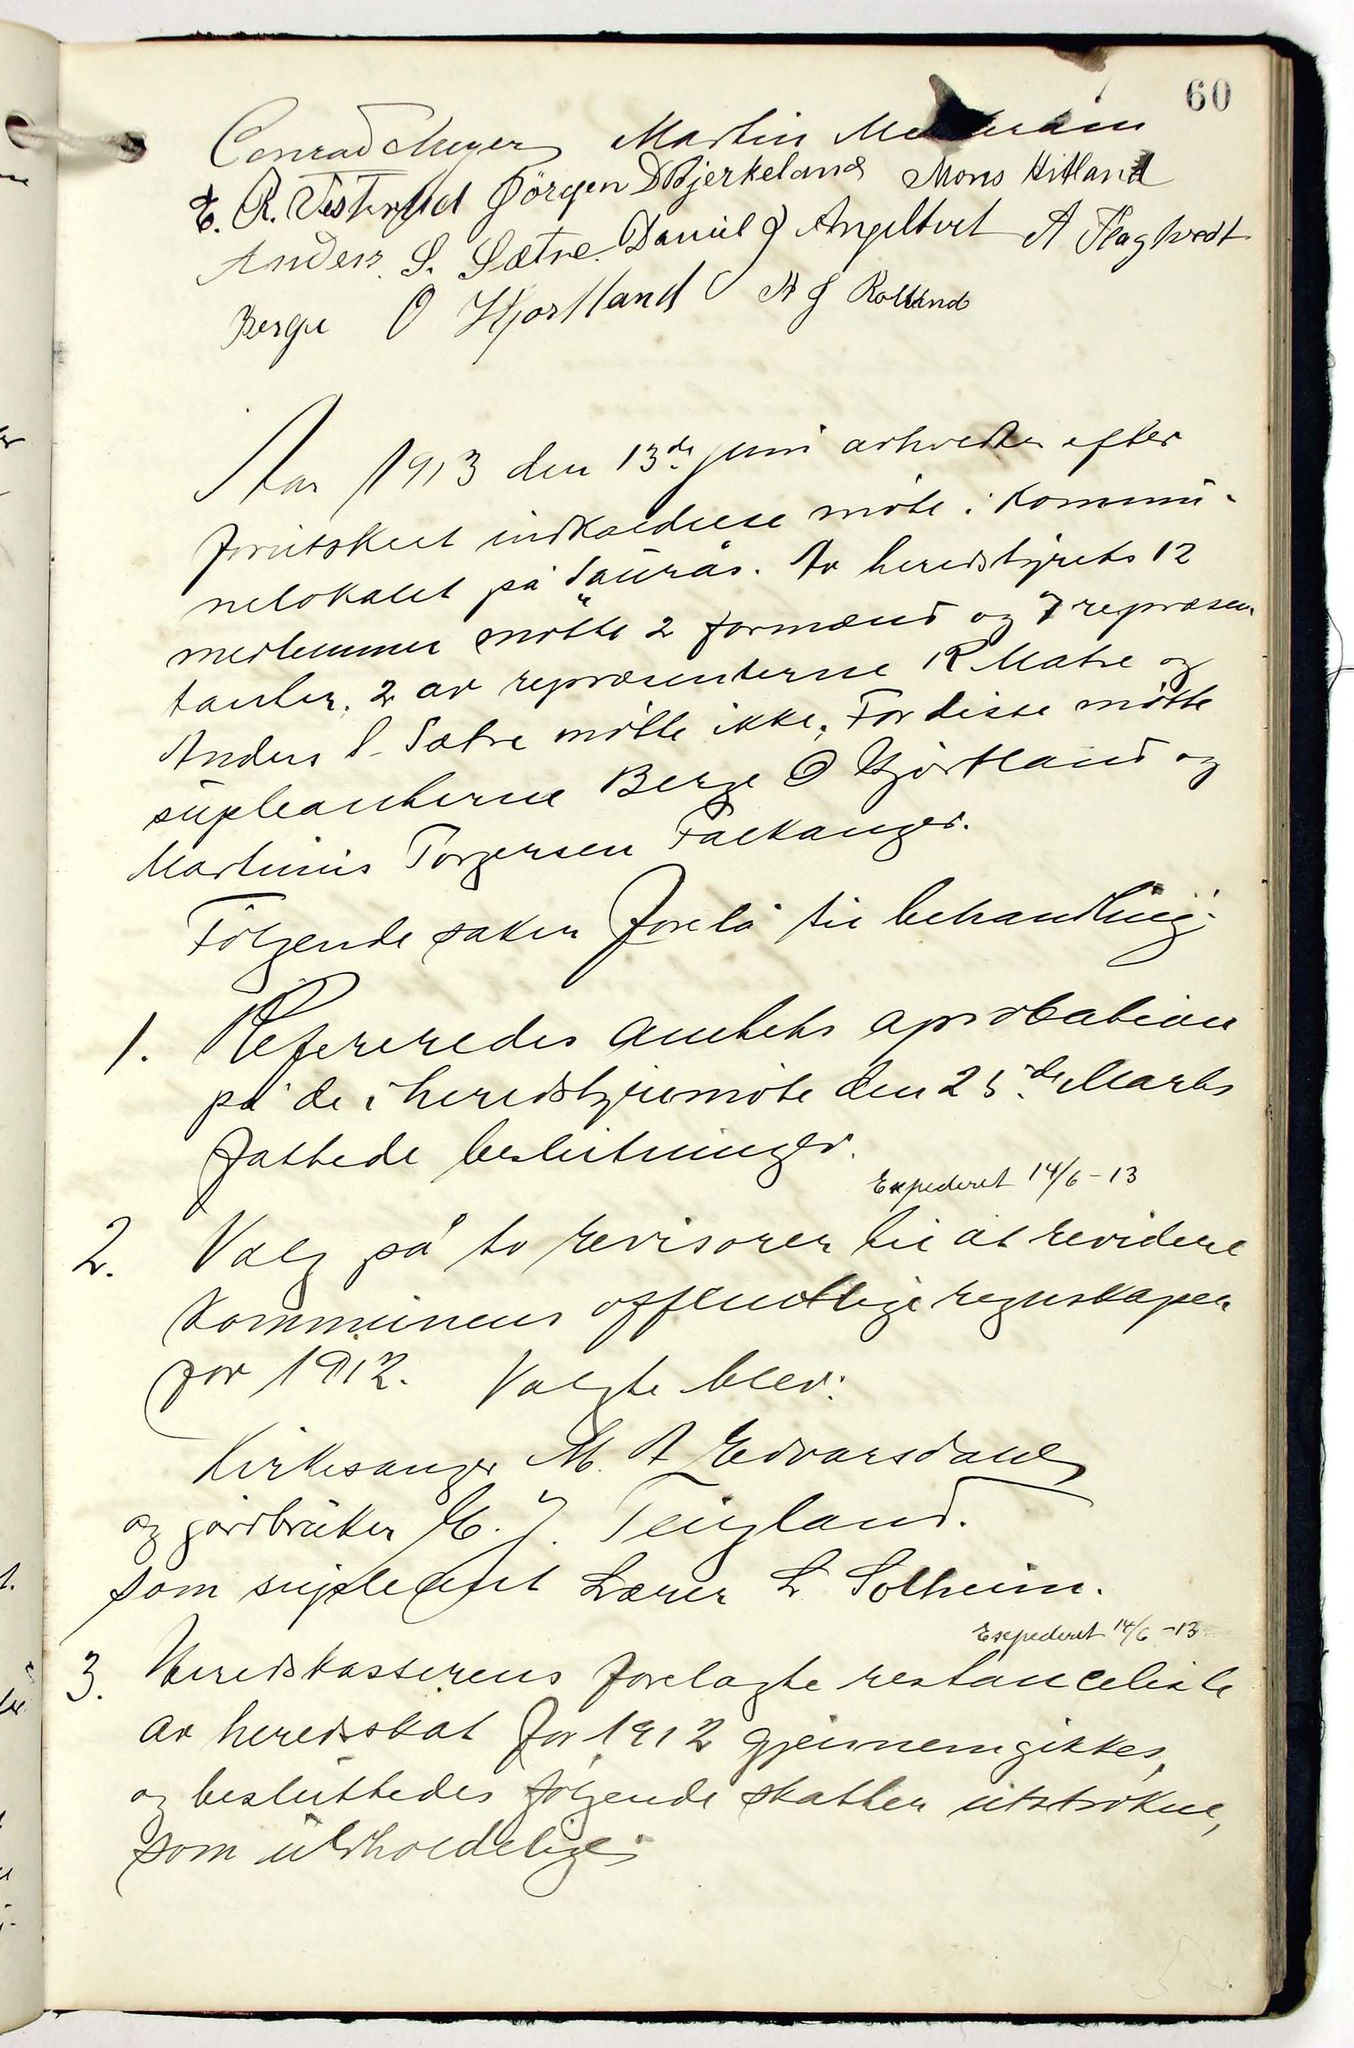 60
Conrad Meyer Martin
E. R. Testrud Jörgen D Bjerkeland Mons Hitland
Anders S. Sætre. Daniel J Angeltvet A Flagtvedt
Berge O Hjortland A J Rolland
Aar 1913 den 13de juni avholdtes efter
forutskut indkaldelse möte i kommu-
nelokalet på Saurås. Av heredstyrets 12
medlemmer mötte 2 formænd og 7 repræsen
tanter. 2 av repræsenterne R Matre og
Anders S. Sætre mötte ikke. For disse mötte
supleanterne Berge O Hjortland og
Martinus Torgersen Falkanger.
Fölgende saker forelå til behandling:
1. Refereredes amtets aprobation
på de i heredstyremöte den 25de Marts
fattede beslutninger.
Expederet 14/6-13
2. Valg på to revisorer til at revidere
kommunens offentlige regnskaper
for 1912. Valgte blev:
Kirkesanger M. A Edvardsdahl
og gårdbruker E. J. Teigland.
som supleant Lærer L Solheim.
Expederet 14/6-13
3. Heredskasserens forelagte restanceliste
av heredsskat for 1912 gjennemgikkes,
og besluttedes fölgende skatter utströkne,
som uerholdelige: